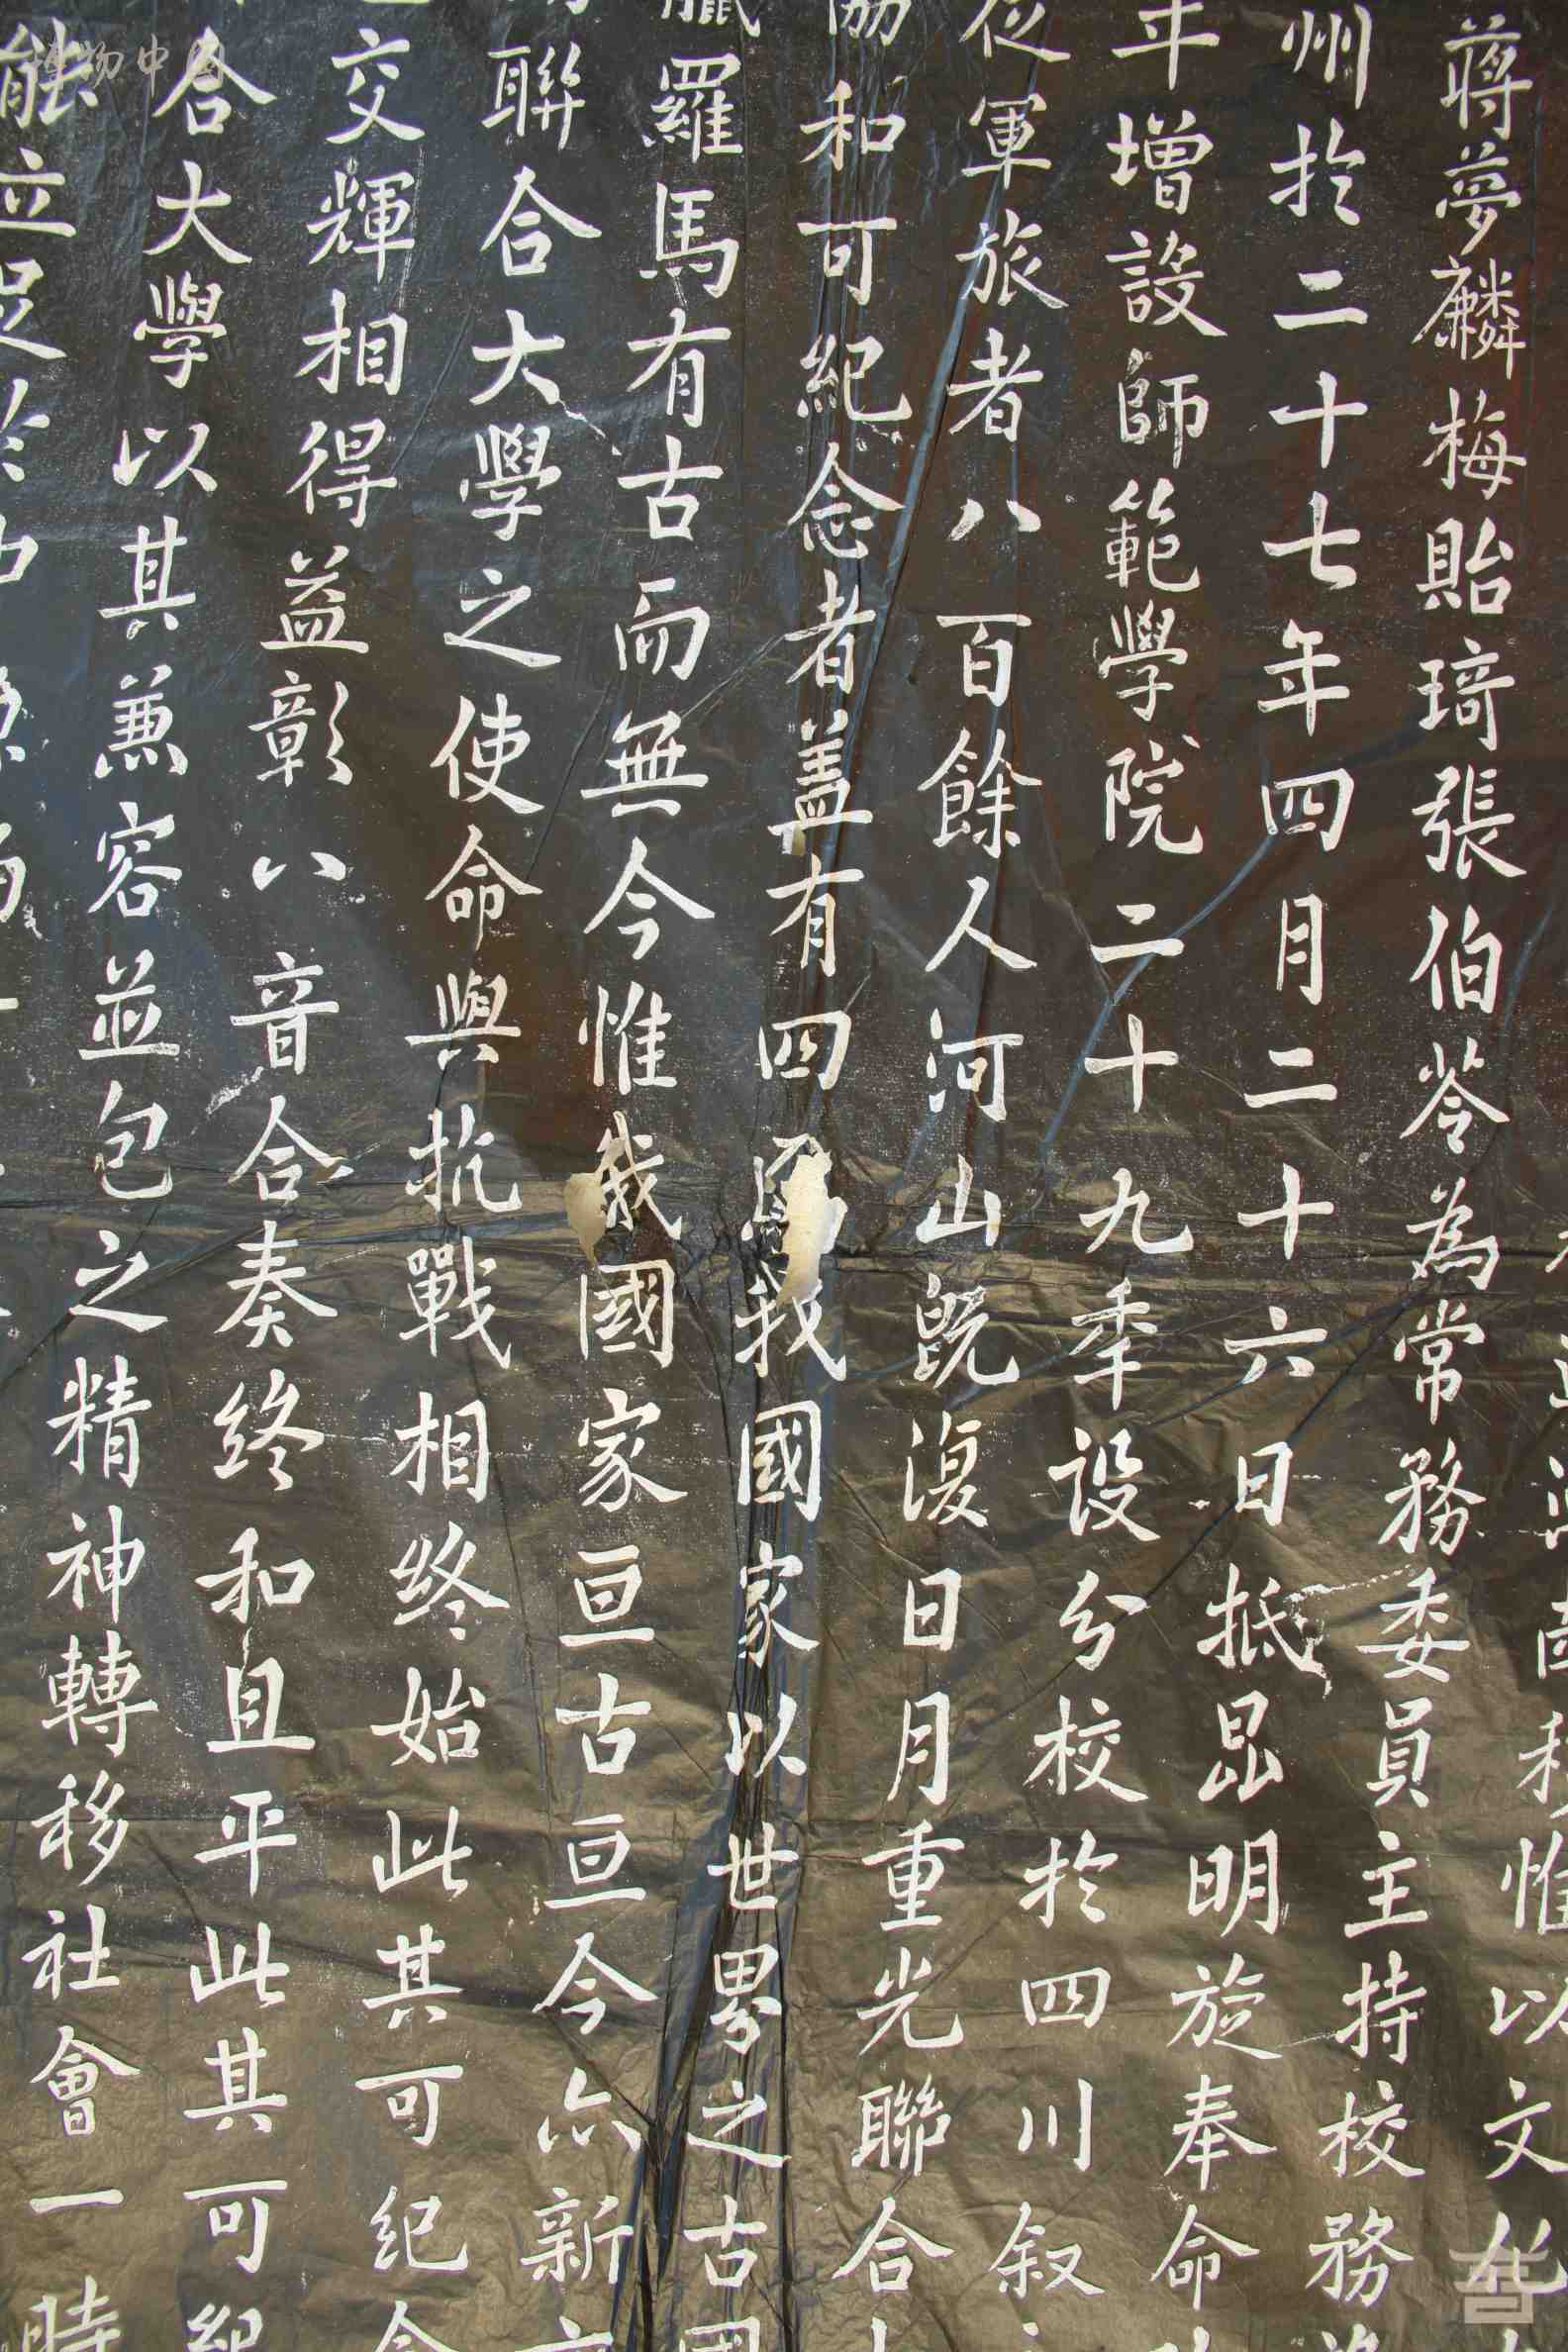 惟以文化
蔣夢麟梅貽琦張伯苓為常務委員主持校務
州於二十七年四月二十六日抵昆明旋奉命
年增設師範學院二十九年設分校於四川叙
從軍旅者八百餘人河山既復日月重光聯合
協和可紀念者蓋有四焉我國家以世界之古國
羅馬有古而無今惟我國家亘古亘今亦新
聯合大學之使命與抗戰相終始此其可紀念
交輝相得益彰八音合奏終和且平此其可紀
合大學以其兼容並包之精神轉移社會一時
能立足於
博物中国